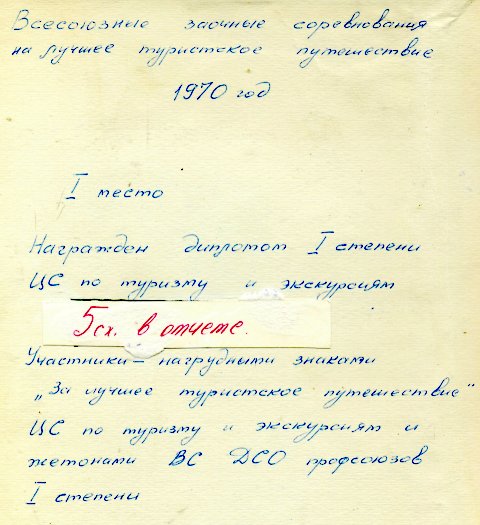 Всесоюзные заочные соревнования
на лучшее туристское путешествие
1970 год
I место
Награжден дипломом I степени
ЦС по туризму и экскурсиям
5сх. в отчете.
Участники – нагрудными знаками
„За лучшее туристское путешествие"
ЦС по туризму и экскурсиям и
жетонами ВС ДСО профсоюзов
I степени